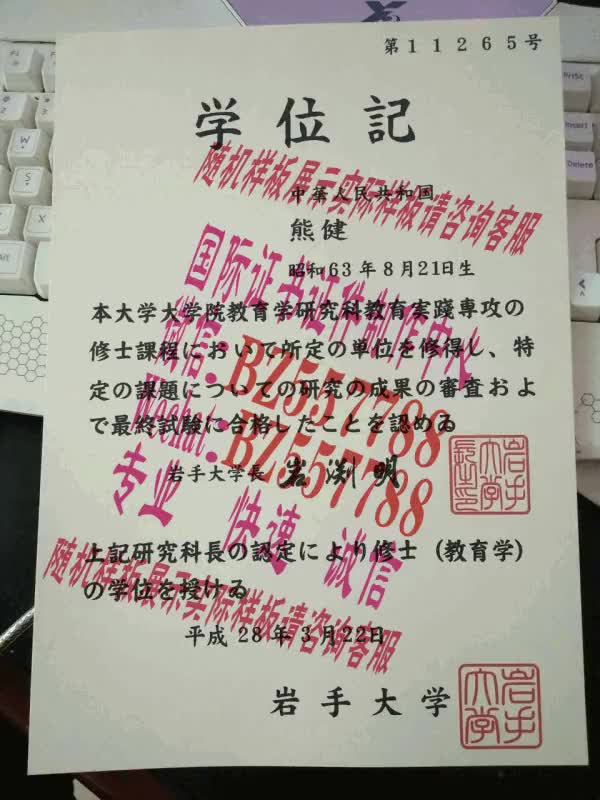 第11265号
学位記
随机样板展示实际样板请咨询客服
中華人民共和国
熊健
昭和63年8月21日生
国际证书证件制作中心
本大学大学院教育学研究科教育実践専攻の
修士課程において所定の単位を修得し、特
定の課題についての研究の成果の審査およ
び最終試験に合格したことを認める
微信:BZ557788
Wechat:BZ557788
岩手大学長 岩渕明
岩手大学長之印
专业 快速 诚信
上記研究科長の認定により修士(教育学)
の学位を授ける
随机样板展示实际样板请咨询客服
平成28年3月22日
岩手大学
岩手大学
PrtSc
Insert
Delete
F1
F2
W
S
Alt